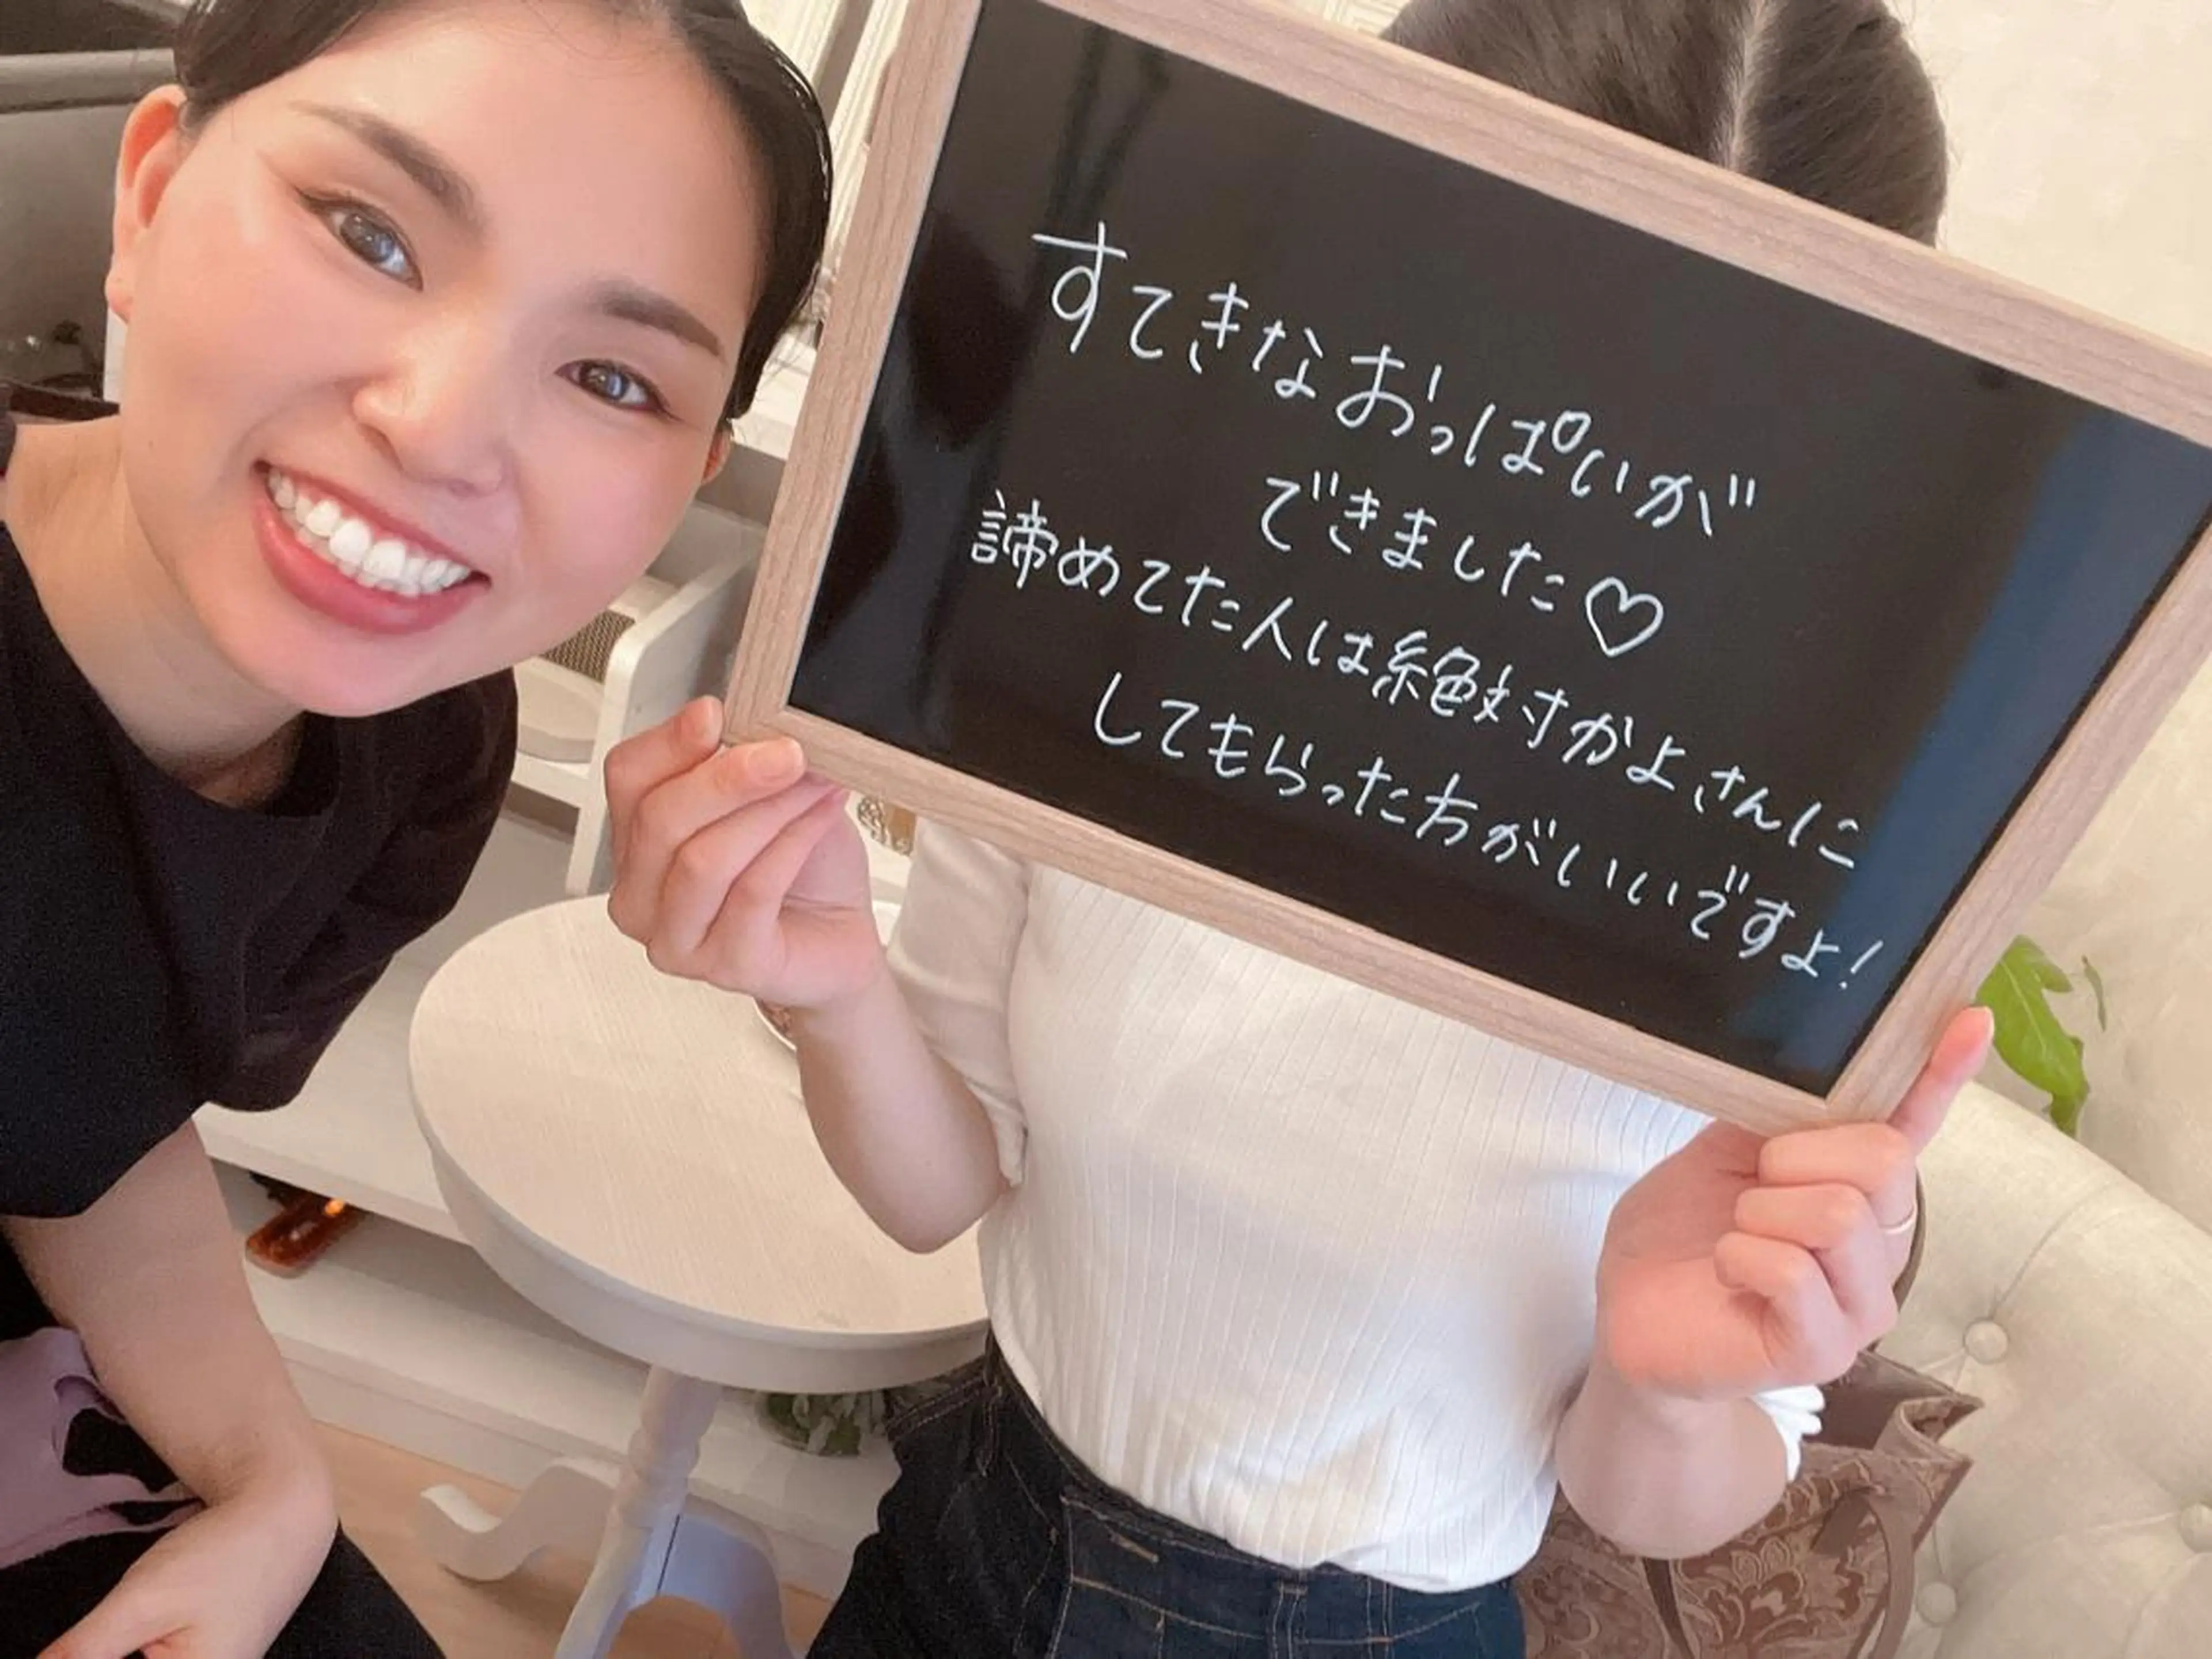 すてきなおっぱいが
できました♡
諦めてた人は絶対かよさんに
してもらった方がいいですよ!